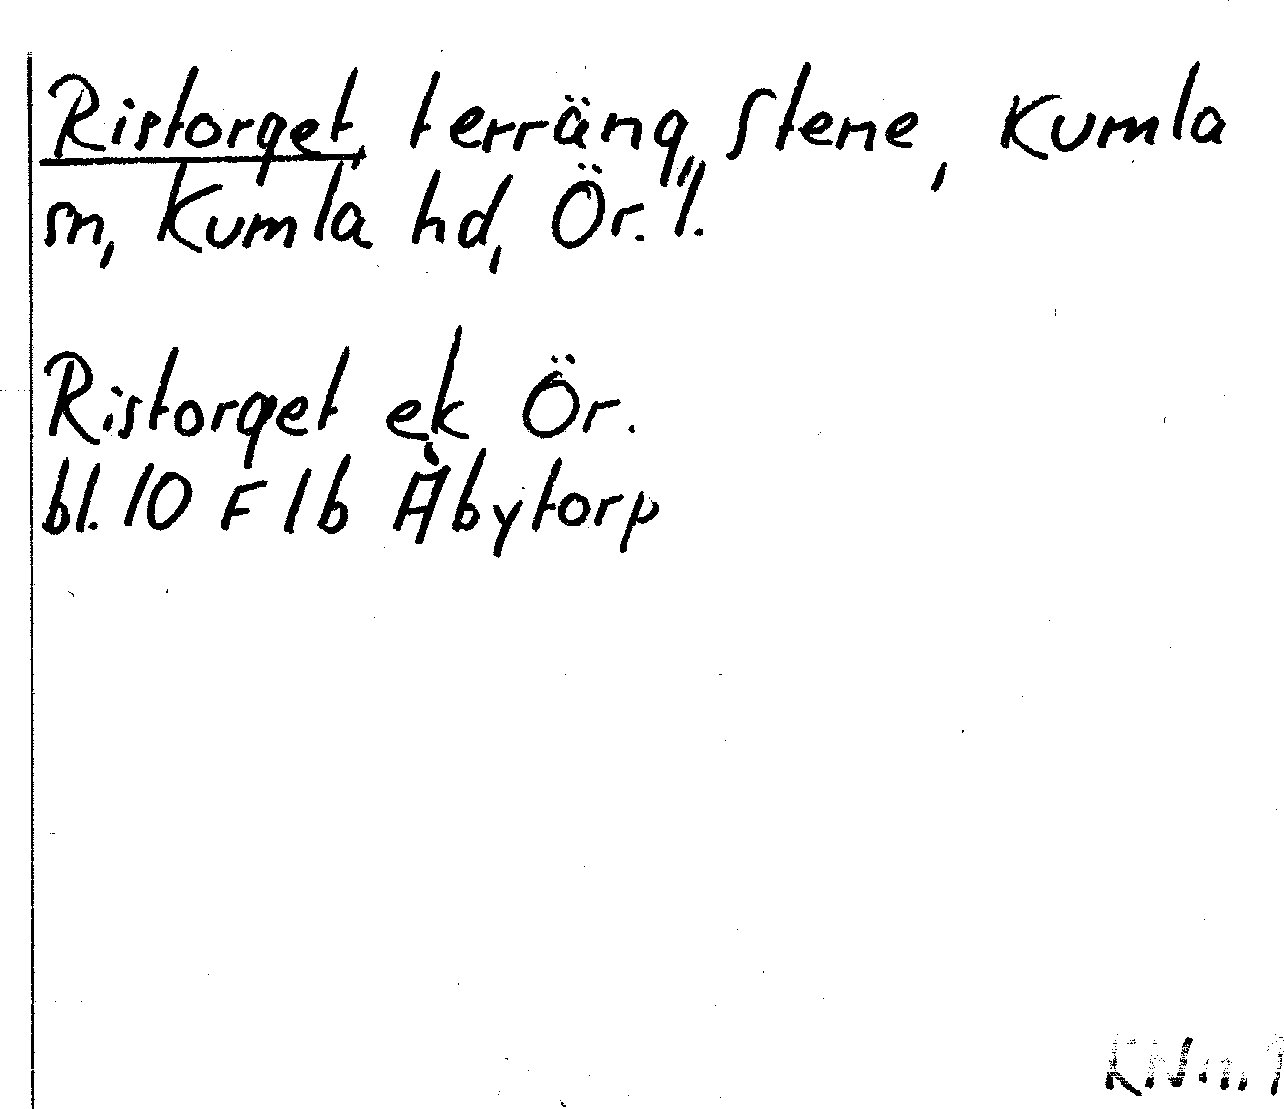 Ristorget, terräng, Stene, Kumla
sn, Kumla hd, Ör. l.
Ristorget ek Ör.
bl. 10 F 1b Åbytorp